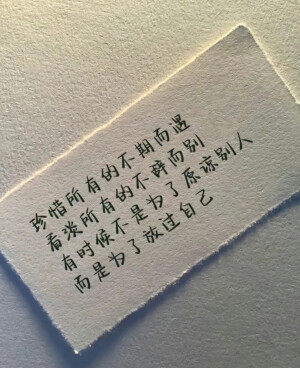 珍惜所有的不期而遇
看淡所有的不辞而别
有时候不是为了原谅别人
而是为了放过自己